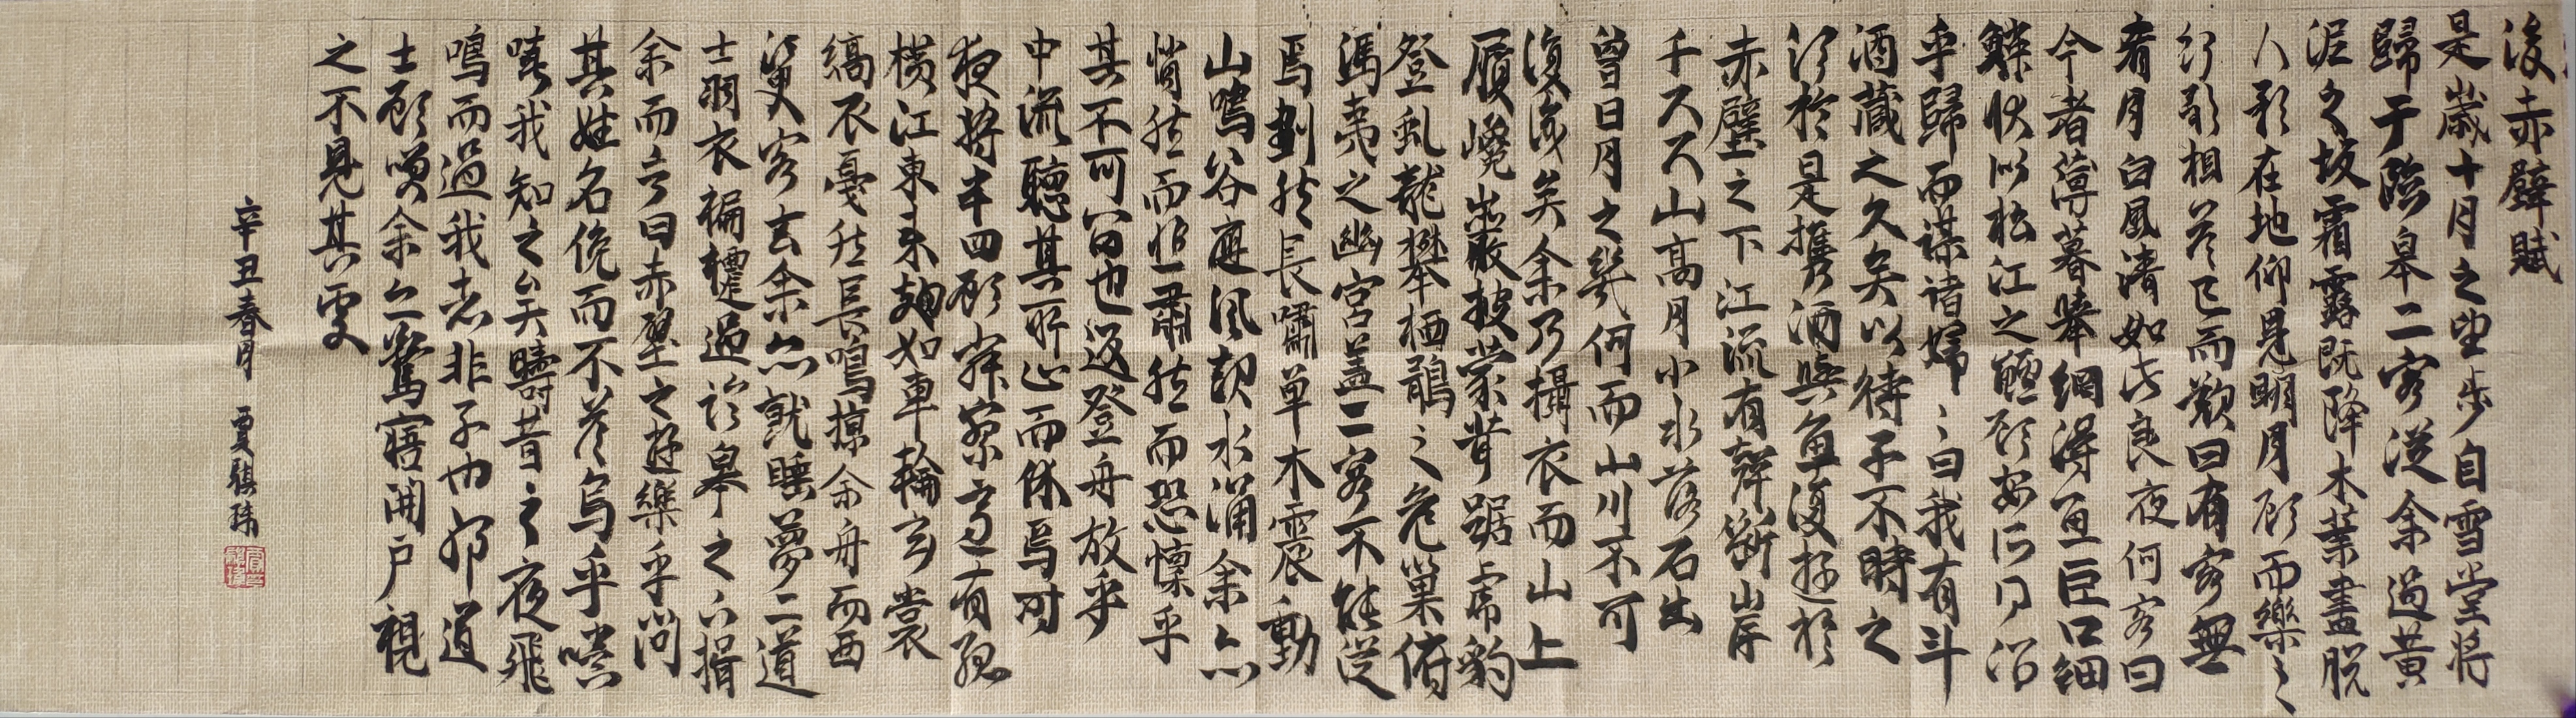 後赤壁賦
是歲十月之望步自雪堂將
歸于臨皋二客從余過黃
泥之坂霜露既降木葉盡脫
人影在地仰見明月顧而樂之
行歌相答已而歎曰有客無
肴月白風清如此良夜何客曰
今者薄暮舉網得魚巨口細
鱗狀似松江之鱸顧安所得酒
乎歸而謀諸婦〻曰我有斗
酒藏之久矣以待子不時之
須於是攜酒與魚復遊於
赤壁之下江流有聲斷岸
千尺山高月小水落石出
曾日月之幾何而山川不可
復識矣余乃攝衣而山上
履巉巖披蒙茸踞虎豹
登虬龍攀栖鶻之危巢俯
馮夷之幽宮蓋二客不能從
焉劃然長嘯草木震動
山鳴谷應風起水涌余亦
悄然而悲肅然而恐懍乎
其不可留也返登舟放乎
中流聽其所止而休焉時
夜將半四顧寂寥適有孤
橫江東來翅如車輪玄裳
縞衣戛然長鳴掠余舟而西
須臾客去余亦就睡夢二道
士羽衣褊褼過臨皋之下揖
余而言曰赤壁之遊樂乎問
其姓名俛而不答嗚乎噫
嘻我知之矣疇昔之夜飛
鳴而過我者非子也耶道
士顧笑余亦驚寤開戶視
之不見其處
辛丑春月 賈騏瑋